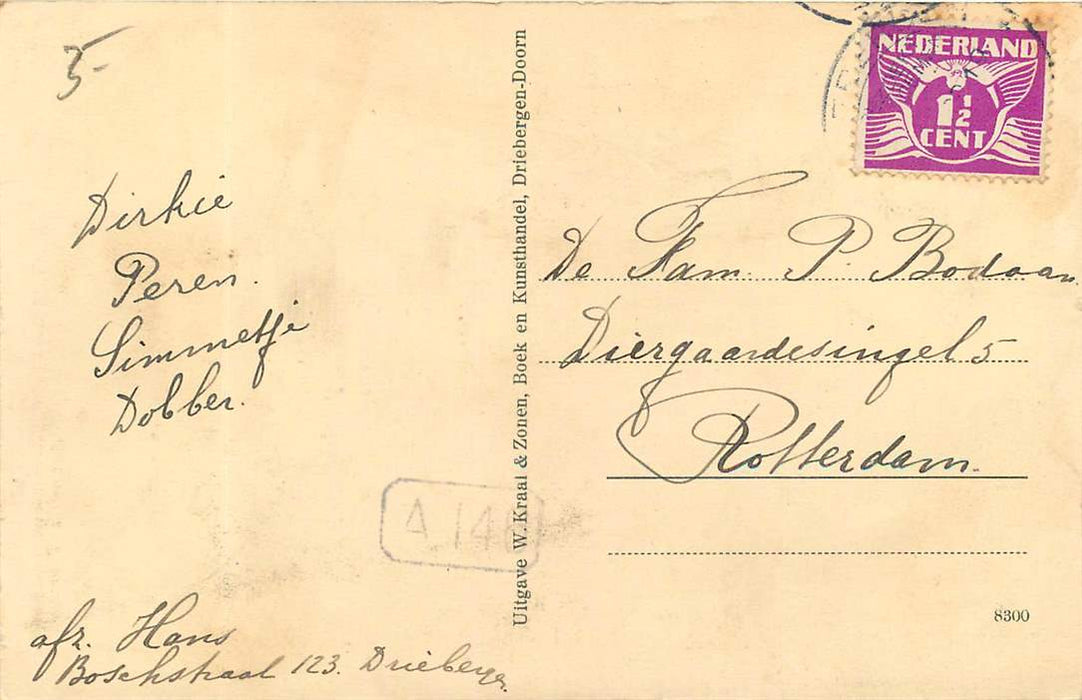 5-
Dirkie
Peren.
Simmetje
Dobber.
afz. Hans
Boschstraat 123. Driebergen
Uitgave W. Kraal & Zonen, Boek en Kunsthandel, Driebergen-Doorn
NEDERLAND
1½
CENT
De Fam. P. Bodaan
Diergaardesingel 5
Rotterdam.
A 146
8300